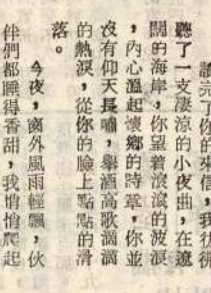 讀完了你的來信,我彷彿
聽了一支淒涼的小夜曲,在遼
闊的海岸,你望着滾滾的波浪
,內心溫起懷鄉的詩章,你並
沒有仰天長嘯,舉酒高歌滴滴
的熱淚,從你的臉上點點的滑
落。
今夜,窗外風雨輕飄,伙
伴們都睡得香甜,我悄悄爬起